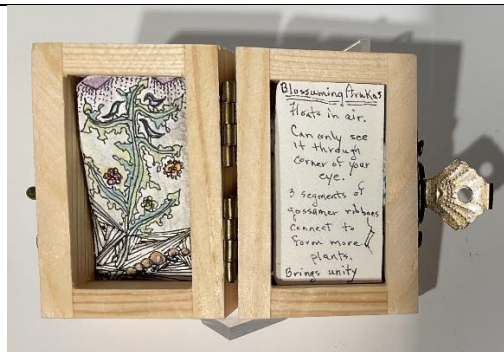 Blossuming Arukas
floats in air.
Can only see
it through
corner of your
eye.
3 segments of
gossamer ribbons
connect to
form more
plants.
Brings unity